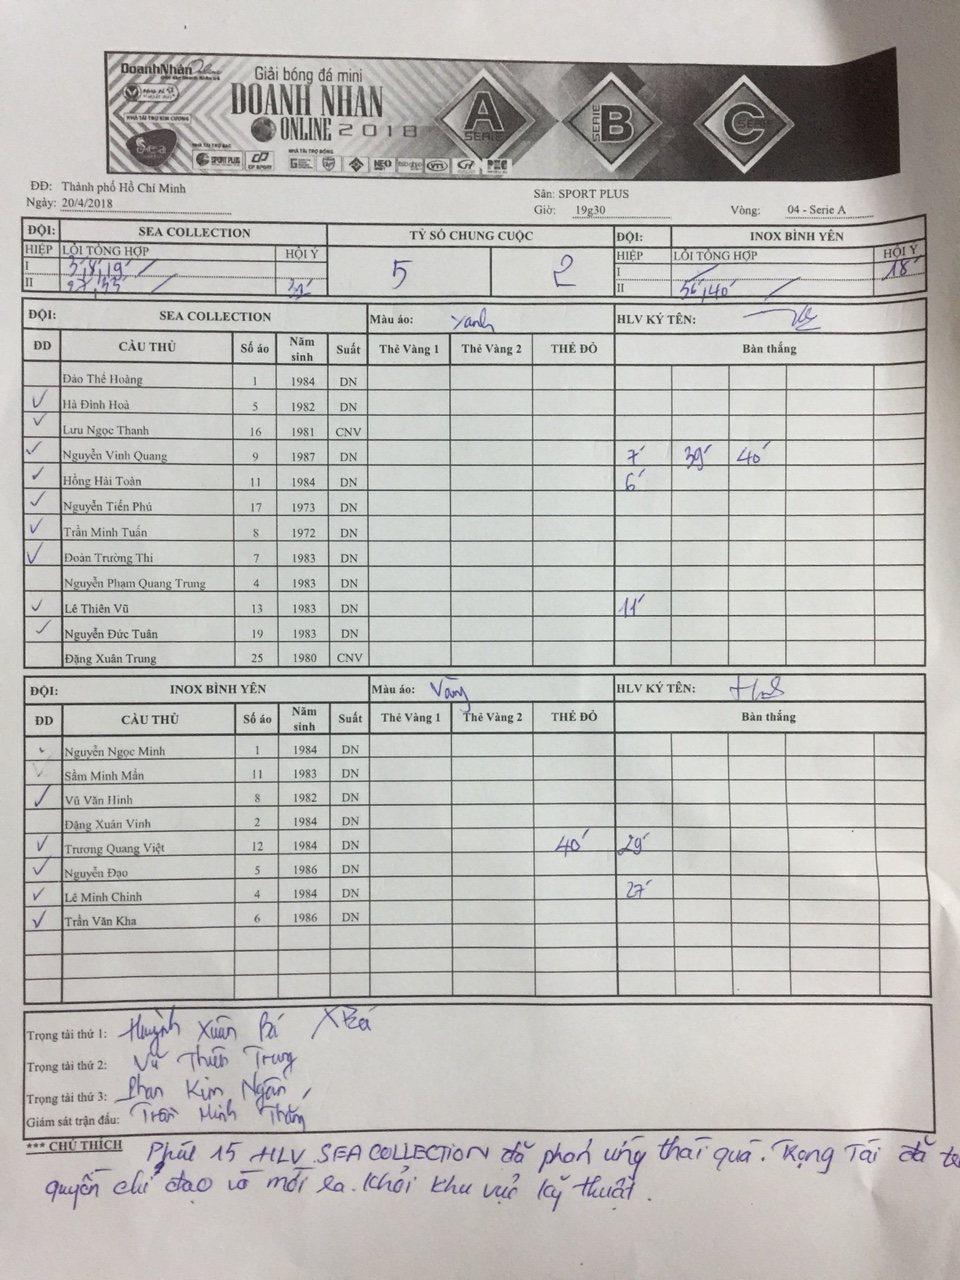 DoanhNhânOnline
Giải bóng đá mini
DOANH NHÂN
ONLINE 2018
NHÀ TÀI TRỢ KIM CƯƠNG
Sea
NHÀ TÀI TRỢ BẠC
SPORT PLUS
CP SPORT
NHÀ TÀI TRỢ ĐỒNG
NEO
A SERIE
SERIE B
C SERIE
ĐĐ: Thành phố Hồ Chí Minh Sân: SPORT PLUS
Ngày: 20/4/2018 Giờ: 19g30 Vòng: 04 - Serie A
ĐỘI: SEA COLLECTION TỶ SỐ CHUNG CUỘC ĐỘI: INOX BÌNH YÊN
HIỆP LỖI TỔNG HỢP HỘI Ý 5 2 HIỆP LỖI TỔNG HỢP HỘI Ý
I I 18'
II II
ĐỘI: SEA COLLECTION Màu áo: Xanh HLV KÝ TÊN:
DD CẦU THỦ Số áo Năm sinh Suất Thẻ Vàng 1 Thẻ Vàng 2 THẺ ĐỎ Bàn thắng
Đào Thế Hoàng 1 1984 DN
✓ Hà Đình Hoà 5 1982 DN
✓ Lưu Ngọc Thanh 16 1981 CNV
✓ Nguyễn Vinh Quang 9 1987 DN 7' 39' 40'
✓ Hồng Hải Toàn 11 1984 DN 6'
✓ Nguyễn Tiến Phú 17 1973 DN
✓ Trần Minh Tuấn 8 1972 DN
✓ Đoàn Trường Thi 7 1983 DN
Nguyễn Phạm Quang Trung 4 1983 DN
✓ Lê Thiên Vũ 13 1983 DN 11'
✓ Nguyễn Đức Tuân 19 1983 DN
Đặng Xuân Trung 25 1980 CNV
ĐỘI: INOX BÌNH YÊN Màu áo: Vàng HLV KÝ TÊN:
DD CẦU THỦ Số áo Năm sinh Suất Thẻ Vàng 1 Thẻ Vàng 2 THẺ ĐỎ Bàn thắng
✓ Nguyễn Ngọc Minh 1 1984 DN
✓ Sầm Minh Mẫn 11 1983 DN
✓ Vũ Văn Hinh 8 1982 DN
Đặng Xuân Vinh 2 1984 DN
✓ Trương Quang Việt 12 1984 DN 40' 29'
✓ Nguyễn Đạo 5 1986 DN
✓ Lê Minh Chinh 4 1984 DN 27'
✓ Trần Văn Kha 6 1986 DN
Trọng tài thứ 1: Huỳnh Xuân Bá
Trọng tài thứ 2: Vũ Thiên Trung
Trọng tài thứ 3: Phan Kim Ngân
Giám sát trận đấu: Trần Minh Thắng
*** CHÚ THÍCH Phút 15 HLV SEA COLLECTION đã phản ứng thái quá. Trọng Tài đã
quyền chỉ đạo và mời ra khỏi khu vực kỹ thuật.